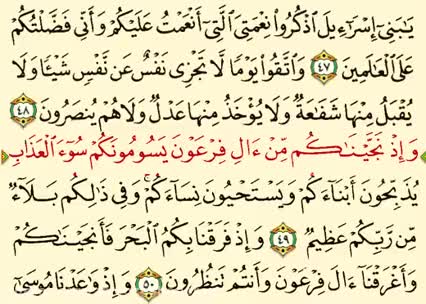 يَـٰبَنِىٓ إِسْرَٰٓءِيلَ ٱذْكُرُوا۟ نِعْمَتِىَ ٱلَّتِىٓ أَنْعَمْتُ عَلَيْكُمْ وَأَنِّى فَضَّلْتُكُمْ
عَلَى ٱلْعَـٰلَمِينَ ٤٧ وَٱتَّقُوا۟ يَوْمًا لَّا تَجْزِى نَفْسٌ عَن نَّفْسٍ شَيْـًٔا وَلَا
يُقْبَلُ مِنْهَا شَفَـٰعَةٌ وَلَا يُؤْخَذُ مِنْهَا عَدْلٌ وَلَا هُمْ يُنصَرُونَ ٤٨
وَإِذْ نَجَّيْنَـٰكُم مِّنْ ءَالِ فِرْعَوْنَ يَسُومُونَكُمْ سُوٓءَ ٱلْعَذَابِ
يُذَبِّحُونَ أَبْنَآءَكُمْ وَيَسْتَحْيُونَ نِسَآءَكُمْ ۚ وَفِى ذَٰلِكُم بَلَآءٌ
مِّن رَّبِّكُمْ عَظِيمٌ ٤٩ وَإِذْ فَرَقْنَا بِكُمُ ٱلْبَحْرَ فَأَنجَيْنَـٰكُمْ
وَأَغْرَقْنَآ ءَالَ فِرْعَوْنَ وَأَنتُمْ تَنظُرُونَ ٥٠ وَإِذْ وَٰعَدْنَا مُوسَىٰٓ